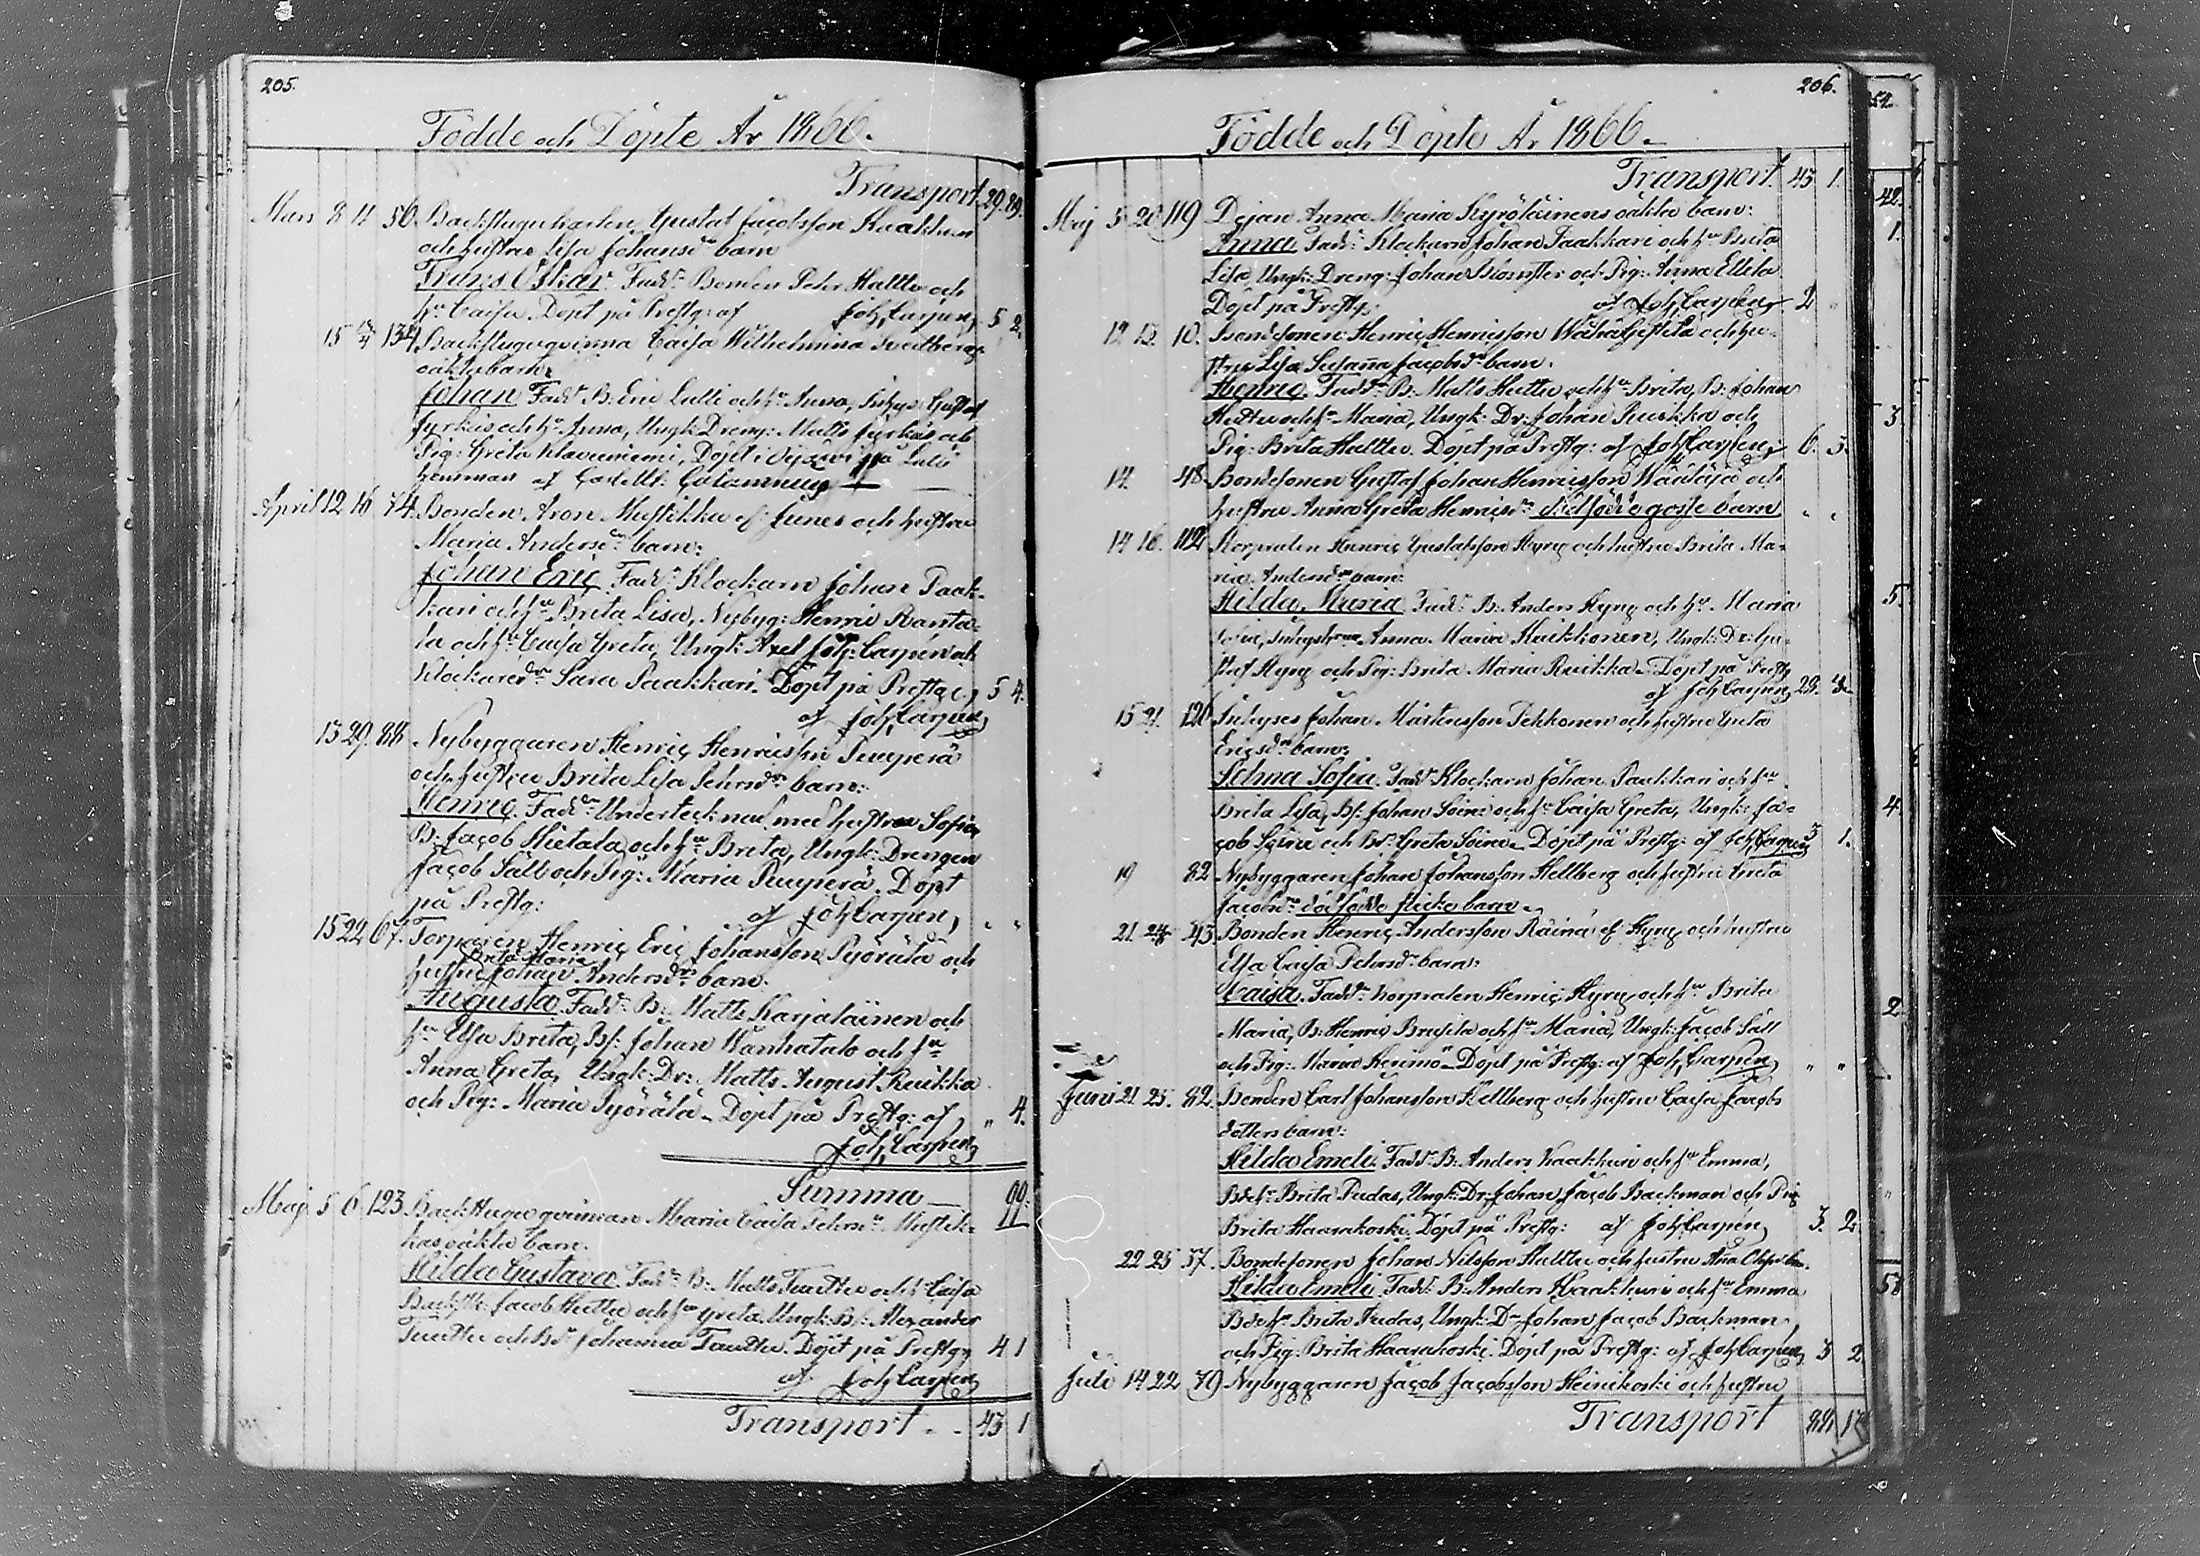 205.
Födde och Döpte År 1866.
Transport 29. 89.
Mars 8 11 56. Backstugukarlen Gustaf Jacobsson Kaakkuri
och hustru Lisa Johansdr barn
Frans Oskar. Fadd: Bonden Pehr Hattu och
hu Caisa. Döpt på Prestg: af Joh, Carpen, 5 2.
15 134 Backstuguqvinna Caisa Wilhelmina
oäkta barn:
Johan. Fadd: B: Eric Lulli och hu Anna, Gustaf
Jyrkäs och hu Anna, Ungk: Dreng: Matts Jyrkäs och
Pig: Greta Klaveniemi, Döpt i på
hemman af
April 12 16 74. Bonden Aron Mustikka of Junes och hustru
Maria Andersdr barn:
Johan Eric. Fadd: Klockarn Johan Paak-
kari och hu Brita Lisa, Nybyg: Henric Ranta-
la och hu Caisa Greta, Ungk: Axel Joh: Carpén och
Klockaredr Sara Paakkari. Döpt på Prestg: 5 4.
af Joh, Carpen,
13 29. 88 Nybyggaren Henric Henricsson Ruuperä
och hustru Brita Lisa Pehrsdr barn:
Henric. Fadd: Undertecknad med hustru Sofia,
B: Jacob Hietala och hu Brita, Ungk: Drengen
Jacob Säll och Pig: Maria Ruuperä. Döpt
på Prestg: af Joh, Carpen, " "
15 22 67. Torparen Henric Eric Johansson Pyörälä och
Brita Maria
hustru Johan Andersdr barn:
Augusta. Fadd: B: Matts Karjalainen och
hu Elsa Brita, Bs: Johan Wanhatalo och hu
Anna Greta, Ungk: Dr: Matts August Ruikka
och Pig: Maria Pyörälä. Döpt på Prestg: af " 4.
Joh, Carpen,
Summa 99.
Maj 5 6 123 Backstuguqvinnan Maria Caisa Pehrsdr Mustik-
kas oäkta barn.
Hilda Gustava. Fadd: B: Matts Tuuttu och hu Caisa
Backstk: Jacob Huttu och hu Greta, Ungk: Bs: Alexander
Tuuttu och Bdr Johanna Tuuttu. Döpt på Prestg: 4 1
af Joh, Carpen,
Transport 43 1
206.
Födde och Döpte År 1866.
Transport. 43 1.
Maj 5 20 119 Dejan Anna Maria Kyröläinens oäkta barn:
Anna. Fadd: Klockarn Johan Paakkari och hu Brita
Lisa, Ungk: Dreng: Johan Blomster och Pig: Anna
Döpt på Prestg: af Joh, Carpen, 2 "
12 13 10. Bondesonen Henric Henricsson och hu-
stru Lisa Susanna Jacobsdr barn:
Henric. Fadd: B: Matts Huttu och hu Brita, B: Johan
Huttu och hu Maria, Ungk: Dr: Johan Ruikka och
Pig: Brita Hattu. Döpt på Prestg: af Joh, Carpen, 6. 3.
14 48 Bondesonen Gustaf Johan Henricsson och
hustru Anna Greta Henricsdr dödfödde gosse barn " "
14 16. 112 Korpralen Henric Gustafsson Kyrö och hustru Brita Ma-
ria Andersdr barn:
Hilda Maria. Fadd: B: Anders Kyrö och hu Maria
Anna Maria Kuikkonen, Ungk: Dr: Gu-
staf Kyrö och Pig: Brita Maria Ruikka. Döpt på Prestg:
af Joh, Carpen, 29.
15 21. 120 Inhyses Johan Mårtensson Pehkonen och hustru Greta
Ericsdr barn:
Selma Sofia. Fadd: Klockarn Johan Paakkari och hu
Brita Lisa, Bs: Johan Soini och hu Caisa Greta, Ungk: Ja-
cob Soini och Bdr Greta Soini. Döpt på Prestg: af Joh, Carpen, 3 1.
19 82 Nybyggaren Johan Johansson Hellberg och hustru Greta
Jacobsdr dödfödde flicke barn.
21. 43 Bonden Henric Andersson Räinä of Kyrö och hustru
Elsa Caisa Pehrsdr barn:
Caisa. Fadd: Korpralen Henric Kyrö och hu Brita
Maria, B: Henric och hu Maria, Ungk: Jacob Säll
och Pig: Maria. Döpt på Prestg: af Joh, Carpen, " "
Juni 21 25. 82. Bonden Carl Johansson Hellberg och hustru Caisa Jacobs
dotters barn:
Hilda Emeli. Fadd: B: Anders Kaakkuri och hu Emma,
Bde hu Brita Pudas, Ungk: Dr: Johan Jacob Backman och Pig
Brita Haarakoski. Döpt på Prestg: af Joh, Carpen, 3. 2
22 25 37. Bondesonen Johan Nilsson Hattu och hustru
Hilda Emeli. Fadd: B: Anders Kaakkuri och hu Emma
Bde hu Brita Pudas, Ungk: Dr: Johan Jacob Backman
och Pig: Brita Haarakoski. Döpt på Prestg: af Joh, Carpen, 3 2
Juli 14 22 79 Nybyggaren Jacob Jacobsson Heinikoski och hustru
Transport 88 17